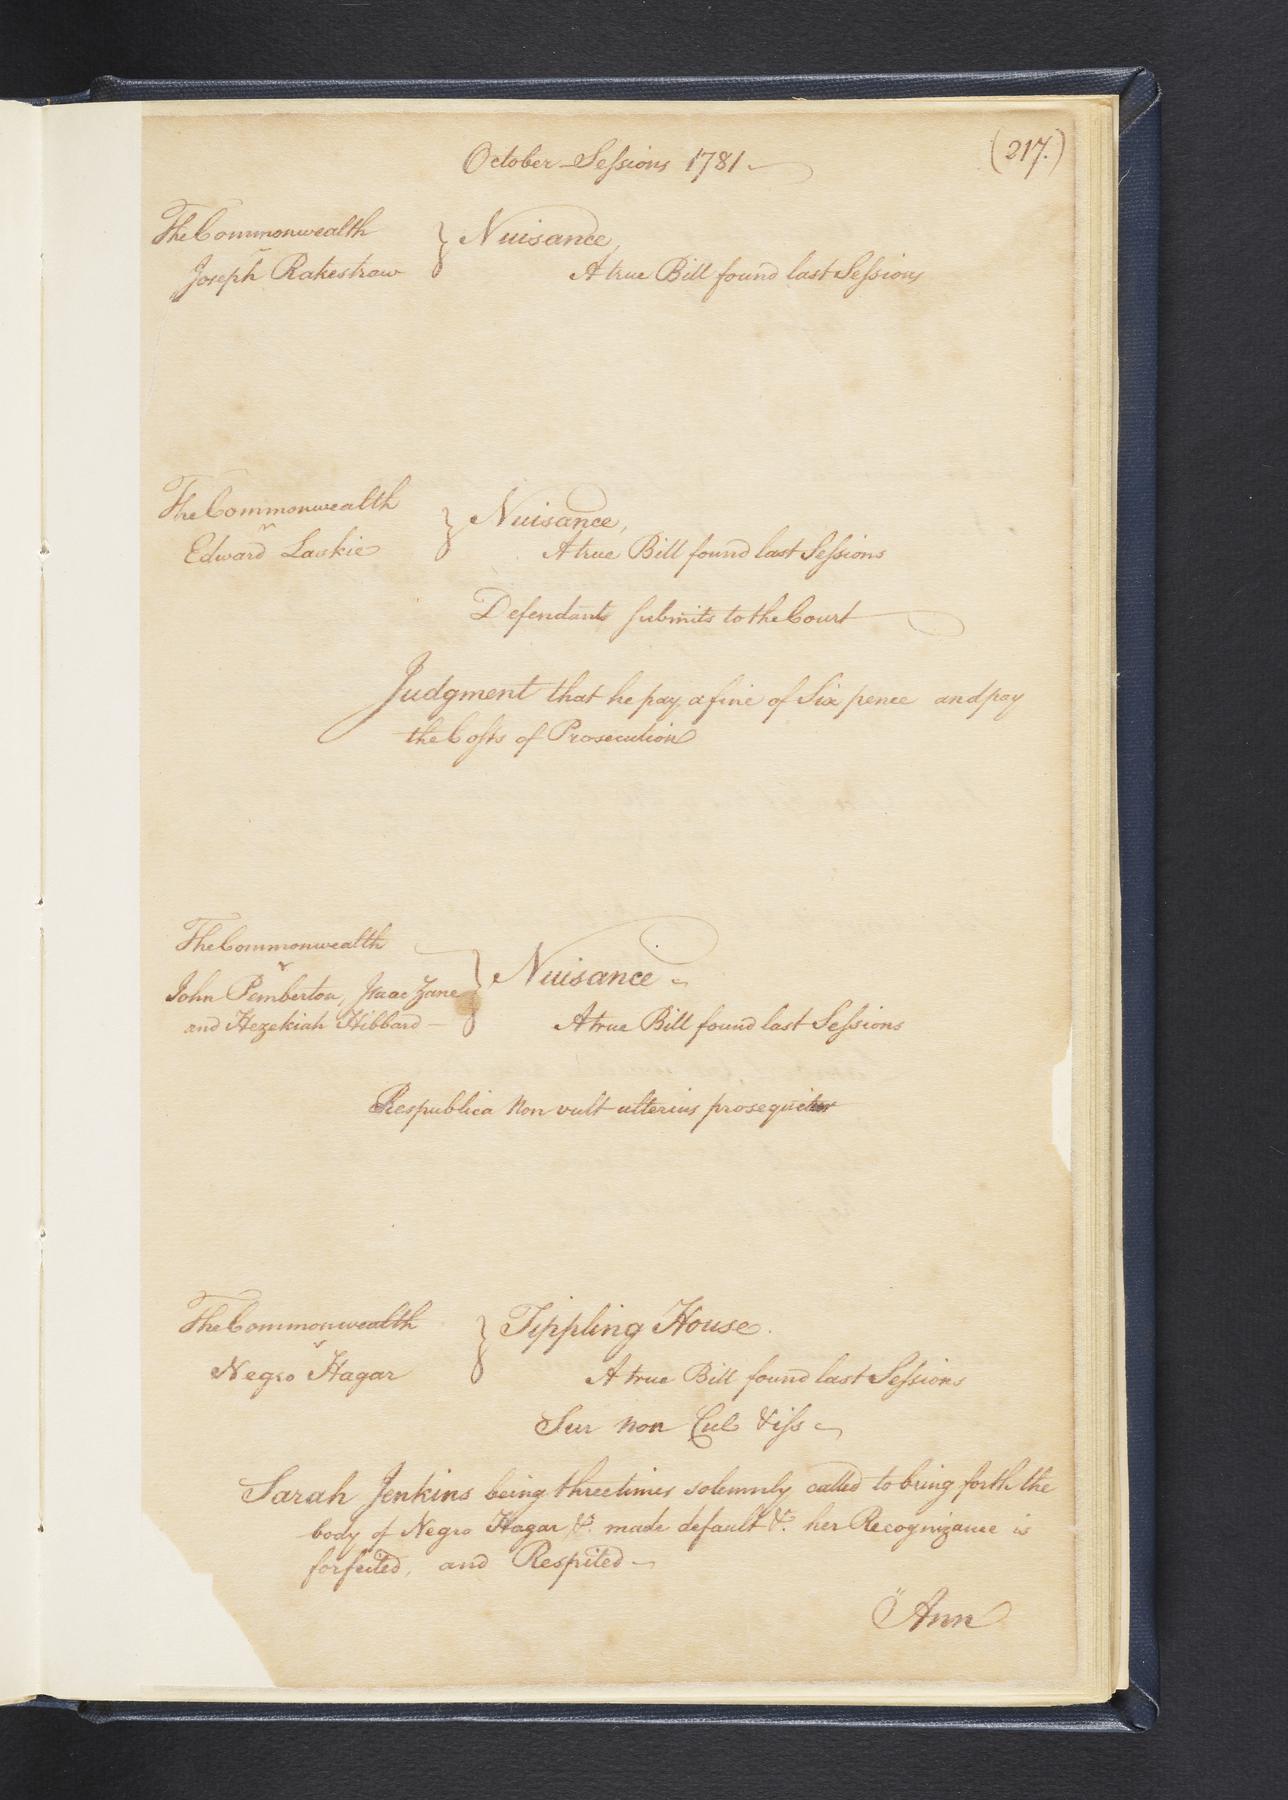 October Sessions 1781
(217.)
The Commonwealth
v
Joseph Rakestraw
Nuisance,
A true Bill found last Sessions
The Commonwealth
v
Edward Laskie
Nuisance,
A true Bill found last Sessions
Defendants submits to the Court
Judgment that he pay a fine of Six pence and pay
the Costs of Prosecution
The Commonwealth
v
John Pemberton, Isaac Zane
and Hezekiah Hibbard
Nuisance
A true Bill found last Sessions
Respublica non vult ulterius prosequi
The Commonwealth
v
Negro Hagar
Tippling House.
A true Bill found last Sessions
Sur non Cul & iss
Sarah Jenkins being three times solemnly called to bring forth the
body of Negro Hagar &c. made default &c. her Recognizance is
forfeited, and Respited
Ann